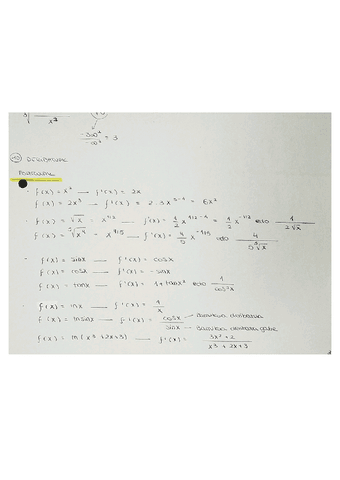 -300² / -10² = 3
DERIBATUAK
f(x) = x² → f'(x) = 2x
f(x) = 2x³ → f'(x) = 2·3x³⁻¹ = 6x²
f(x) = √x = x^1/2 → f'(x) = 1/2 x^1/2-1 = 1/2 x^-1/2 edo 1/2√x
f(x) = ⁵√x⁴ = x^4/5 → f'(x) = 4/5 x^-1/5 edo 4/5⁵√x
f(x) = sinx → f'(x) = cosx
f(x) = cosx → f'(x) = -sinx
f(x) = tanx → f'(x) = 1+tanx² edo 1/cos²x
f(x) = lnx → f'(x) = 1/x
f(x) = lnsinx → f'(x) = cosx/sinx
f(x) = ln(x³+2x+3) → f'(x) = 3x²+2/x³+2x+3